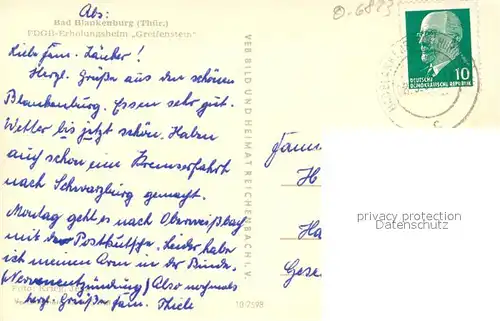 Abs:
Bad Blankenburg (Thür.)
FDGB-Erholungsheim „Greifenstein"
Liebe Fam. Läuber!
Herzl. Grüße aus den schönen
Blankenburg. Essen sehr gut.
Wetter bis jetzt schön. Haben
auch schon eine Kremserfahrt
nach Schwarzburg gemacht.
Montag geht es nach Oberweißbach
mit der Postkutsche. Leider habe
ich meinen Arm in der Binde.
(Nervenentzündung) Also nochmals
herzl. Grüße Fam. Thiele
10/2598
VEB BILD UND HEIMAT REICHENBACH I. V.
DEUTSCHE
DEMOKRATISCHE REPUBLIK
10
Fam
H
Ha
Ges
privacy protection
Datenschutz